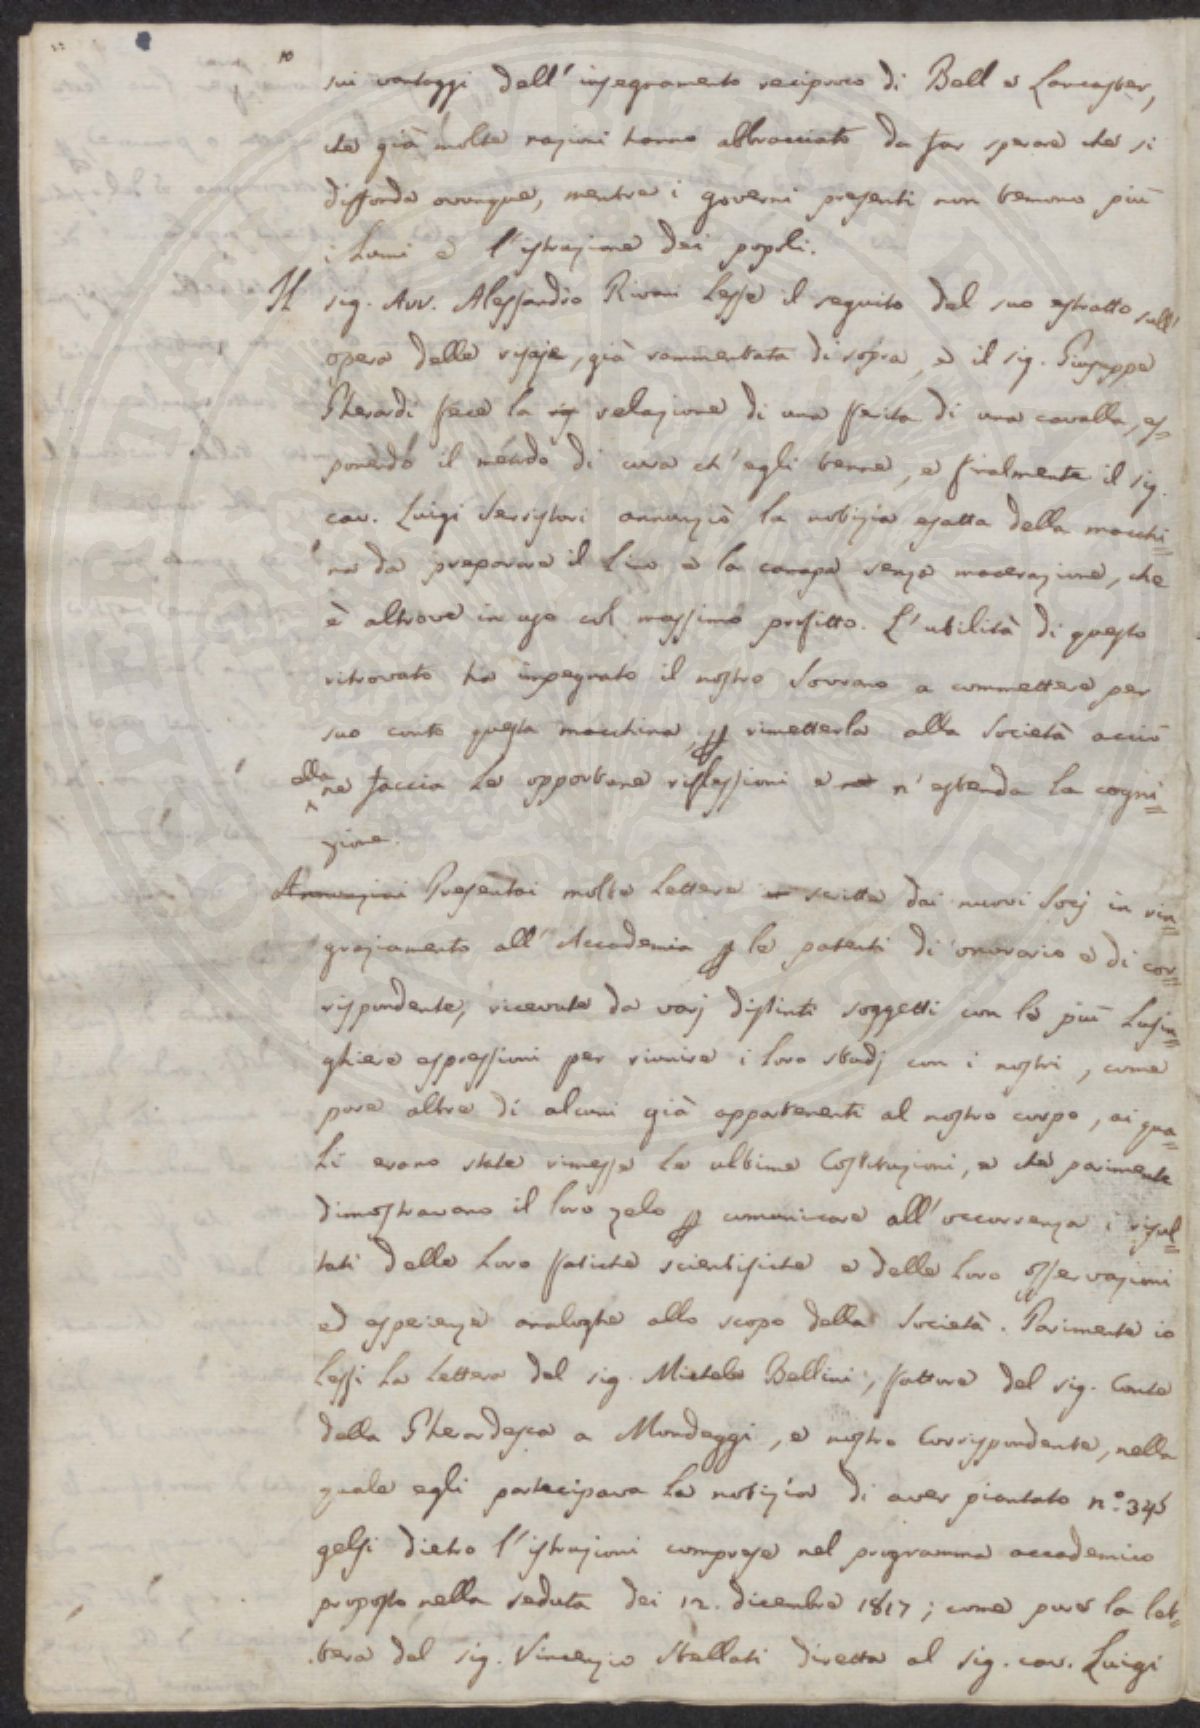 sui vantaggi dell'insegnamento reciproco di Bell e Lancaster,
che già molte nazioni hanno abbracciato da far sperare che si
diffonda ovunque, mentre i governi presenti non temono più
i lumi e l'istruzione dei popoli.
Il sig. Avv. Alessandro Rivani lesse il seguito del suo estratto sull'
opera delle risaje, già rammentata di sopra, e il sig. Giuseppe
Gherardi fece la relazione di una ferita di una cavalla, es-
ponendo il metodo di cura ch'egli tenne, e finalmente il sig.
cav. Luigi Serristori annunziò la notizia esatta della macchi=
na da preparare il lino e la canapa senza macerazione, che
è altrove in uso col massimo profitto. L'utilità di questo
ritrovato ha impegnato il nostro Sovrano a commettere per
suo conto questa macchina, p rimetterla alla Società acciò
ella ne faccia le opportune riflessioni e n'estenda la cogni=
zione.
Annunziai Presentai molte lettere scritte dai nuovi Socj in rin=
graziamento all'Accademia p le patenti di onorario e di cor=
rispondente, ricevute da varj distinti soggetti con le più lusin=
ghiere espressioni per riunire i loro studj con i nostri, come
pure altre di alcuni già appartenenti al nostro corpo, ai qua=
li erano state rimesse le ultime Costituzioni, e che parimente
dimostravano il loro zelo p comunicare all'occorrenza i risul=
tati delle loro fatiche scientifiche e delle loro osservazioni
ed esperienze analoghe allo scopo della Società. Parimente io
lessi la lettera del sig. Michele Bellini, fattore del sig. Conte
della Gherardesca a Mondeggi, e nostro Corrispondente, nella
quale egli partecipava la notizia di aver piantato n.° 345
gelsi dietro l'istruzioni comprese nel programma accademico
proposto nella seduta dei 12. dicembre 1817; come pure la let=
tera del sig. Vincenzio Stellati diretta al sig. cav. Luigi